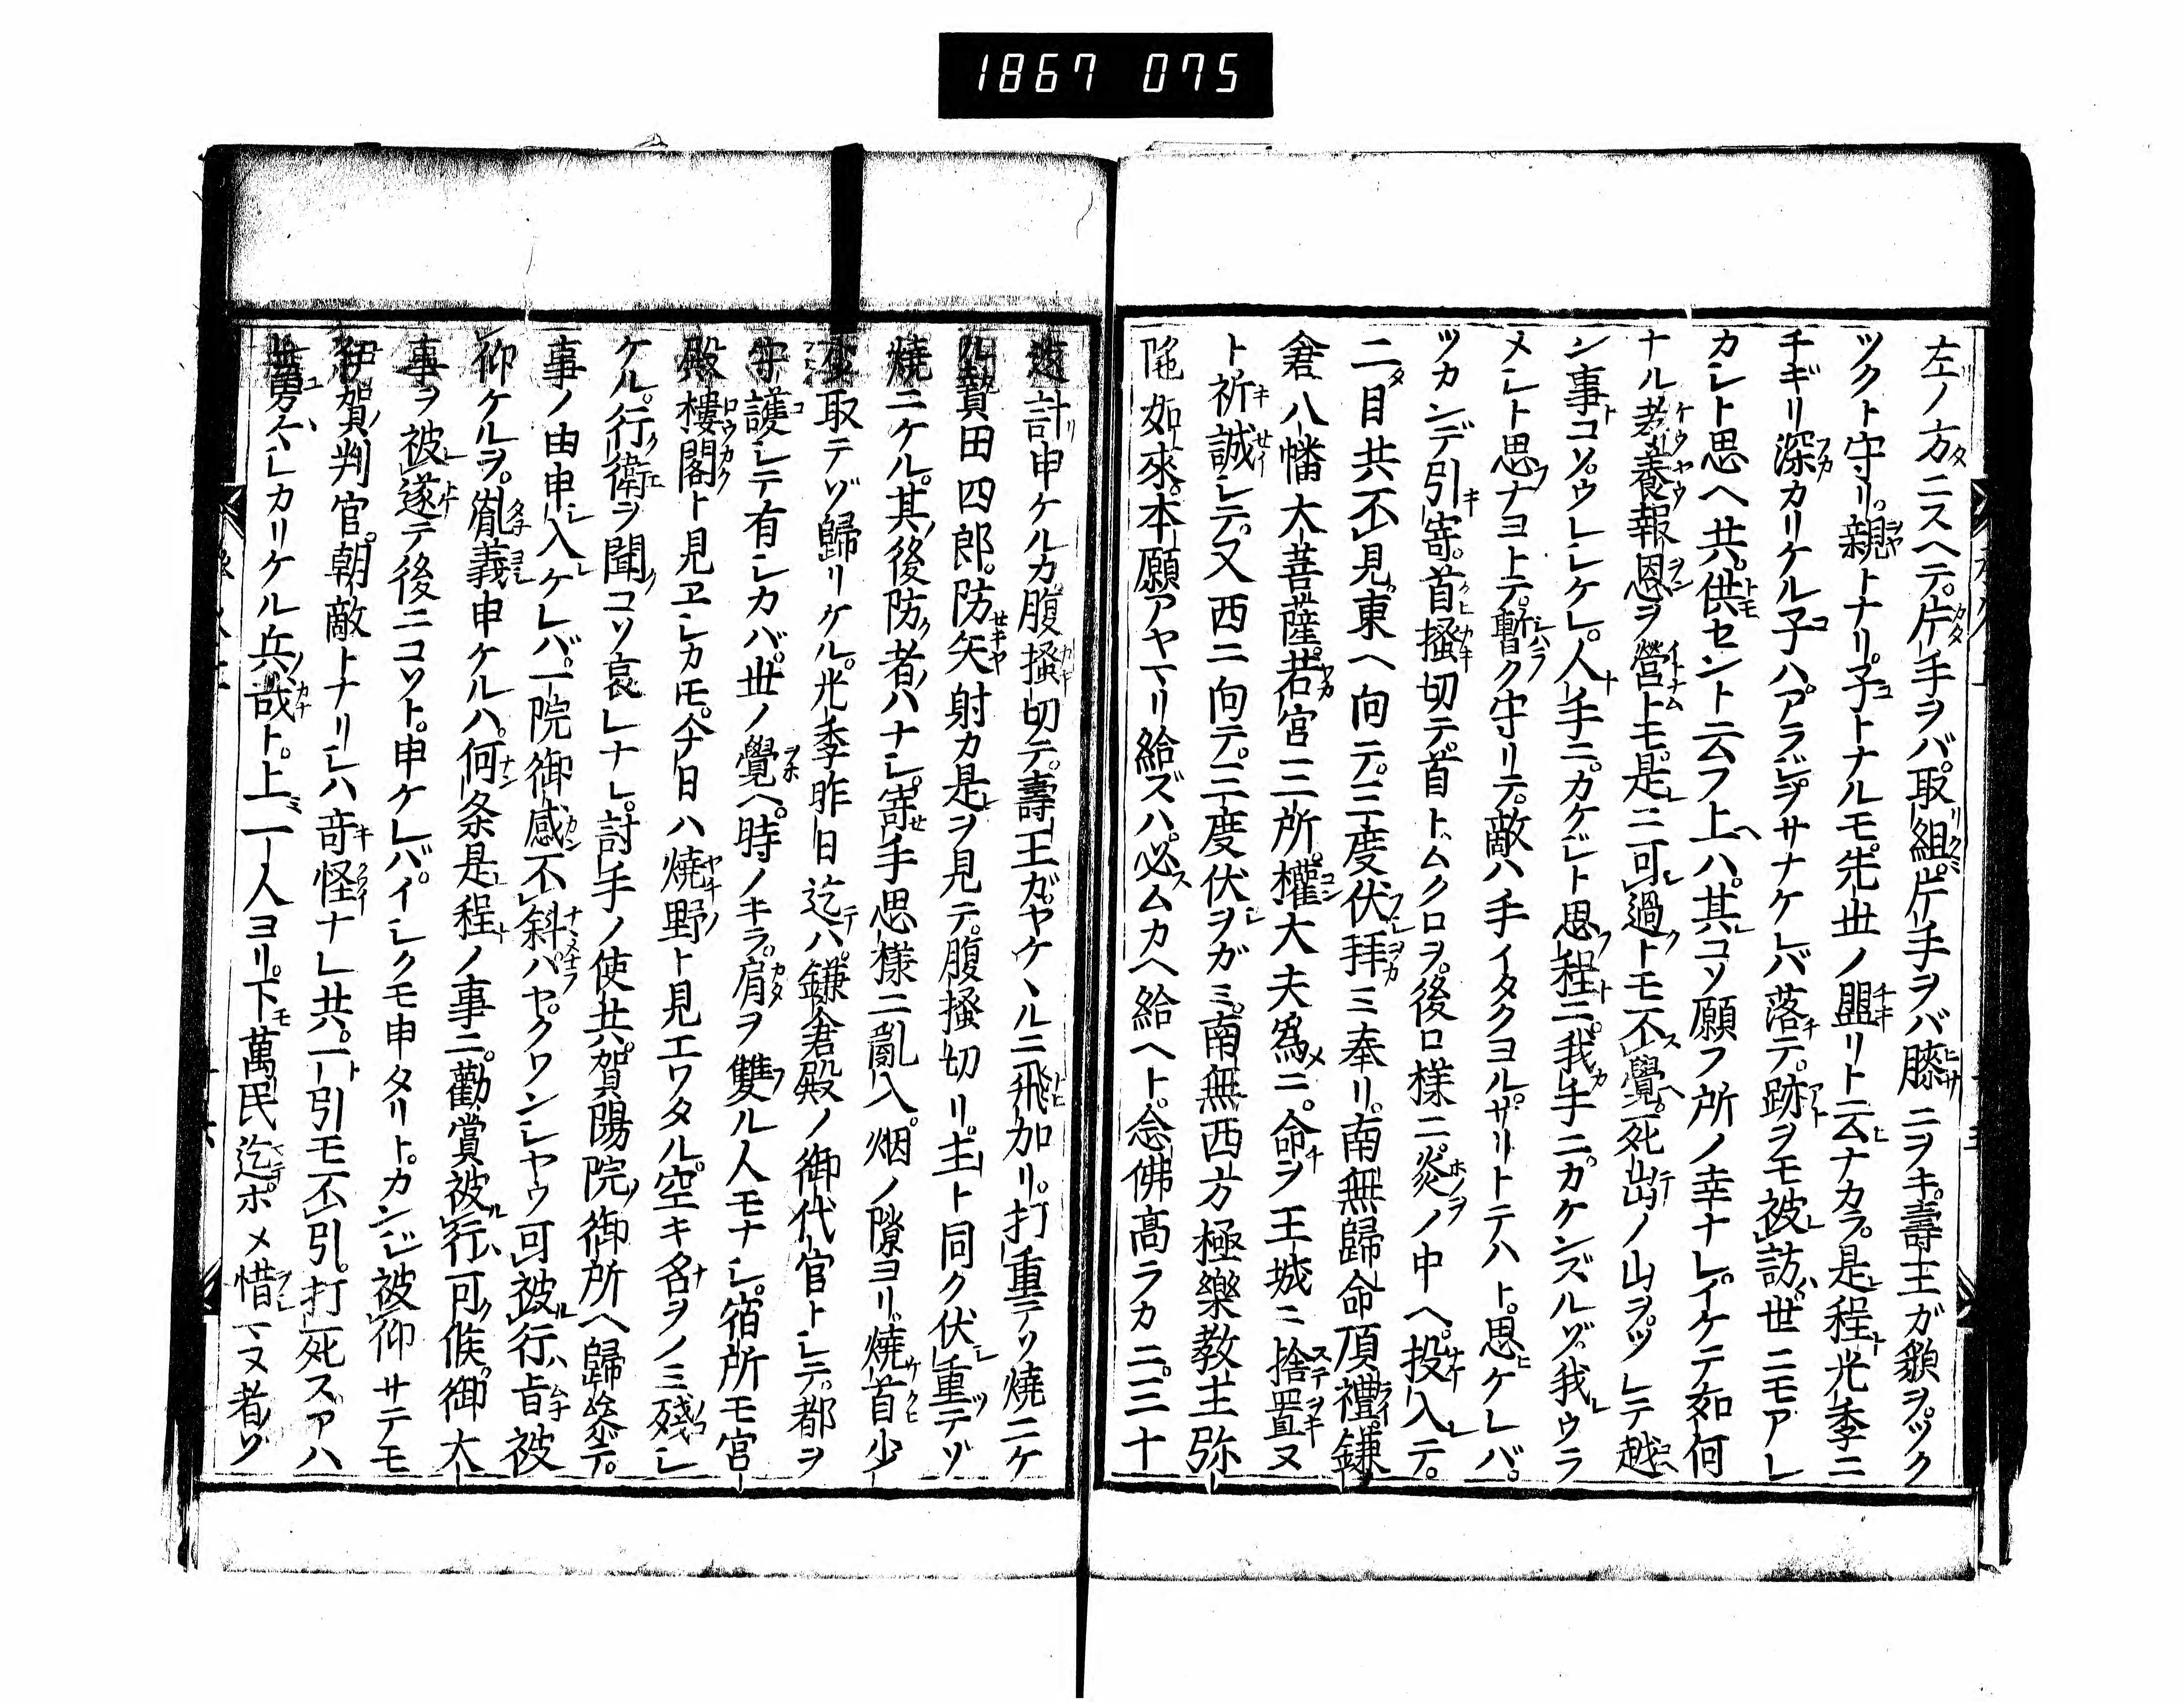 1867 075
左ノ方ニスヘテ。片手ヲバ取組。片手ヲバ膝ニヲキ。壽王ガ皃ヲツク
ツクト守リ。親トナリ子トナルモ。先世ノ盟リト云ナカラ。是程光季ニ
チギリ深カリケル子ハアラジ。ヲサナケレバ落テ。跡ヲモ被訪世ニモアレ
カシト思ヘ共。供セント云フ上ハ。其コソ願フ所ノ幸ナレ。イケテ如何
ナル孝養報恩ヲ營トモ。是ニ可過トモ不覺。死出ノ山ヲツレテ越
ン事コソ。ウレシケレ。人手ニ。カケジト思程ニ。我手ニカケンズルゾ。我ウラ
メシト思ナヨトテ。暫ク守リテ。敵ハ手イタクヨル。サリトテハト。思ケレバ。
ツカンデ引寄。首搔切テ。首トムクロヲ。後ロ樣ニ炎ノ中ヘ。投入テ。
二目共不見。東ヘ向テ。三度伏拜ミ奉リ。南無歸命頂禮。鎌
倉八幡大菩薩。若宮三所。權大夫爲ニ。命ヲ王城ニ捨置ヌ
ト祈誠シテ。又西ニ向テ。三度伏ヲガミ。南無西方極樂敎主弥
陁如來。本願アヤマリ給ズハ。必ムカヘ給ヘト。念佛髙ラカニ。三十
返計申ケルカ。腹搔切テ。壽王ガヤケヽルニ飛加リ。打重テソ燒ニケ
ル。贄田四郎。防矢射カ是ヲ見テ。腹搔切リ。主ト同ク伏重テゾ
燒ニケル。其後防者ハナシ。寄手思樣ニ亂入。烟ノ隙ヨリ。燒首少
取テゾ歸リケル。光季昨日迄ハ。鎌倉殿ノ御代官トシテ。都ヲ
守護シテ有シカバ。世ノ覺ヘ。時ノキラ。肩ヲ雙ル人モナシ。宿所モ宮
殿樓閣ト見ヱシカモ。今日ハ燒野ト見エワタル。空キ名ヲノミ殘シ
ケル。行衛ヲ聞コソ哀レナレ。討手ノ使共。賀陽院御所ヘ歸參テ。
事ノ由申入ケレバ。一院御感不斜。ハヤクワンシヤウ可被行旨被
仰ケルヲ。胤義申ケルハ。何条是程ノ事ニ。勸賞被行可候。御大
事ヲ被遂テ後ニコソト。申ケレバ。イシクモ申タリト。カンジ被仰サテモ
伊賀判官。朝敵トナリシハ竒怪ナレ共。一引モ不引。打死ス。アハ
ユヽシカリケル兵哉ト。上一人ヨリ。下萬民迄ホメ惜マヌ者ゾ